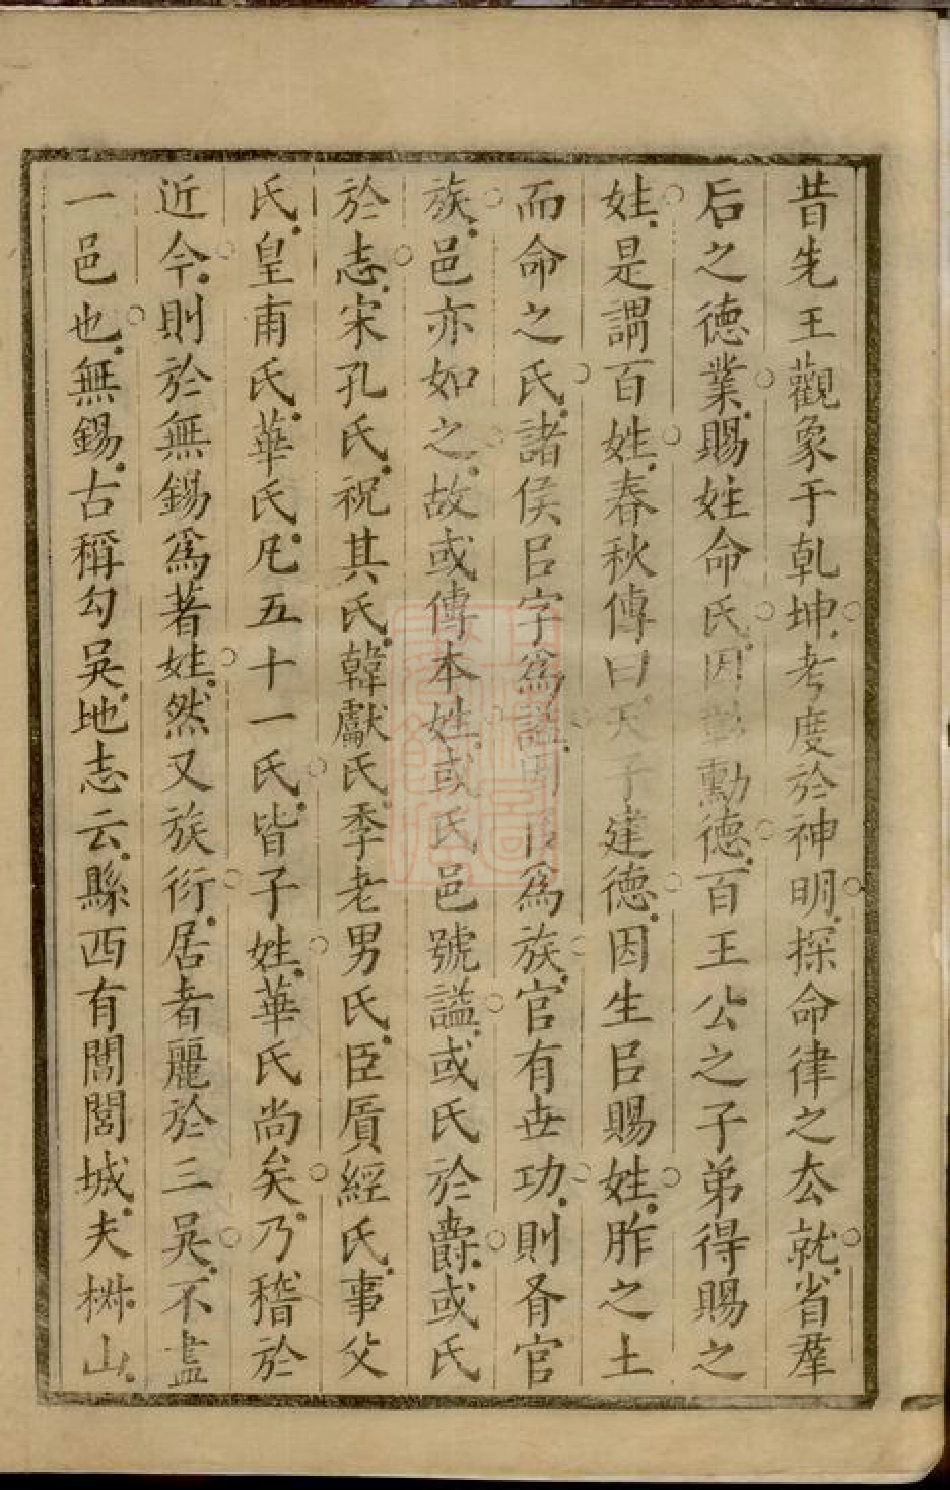 昔先王觀象于乹坤考度於神明探命律之厺就省羣
后之德業賜姓命氏因彰勳德百王公之子弟得賜之
姓是謂百姓春秋傳曰天子建德因生㠯賜姓胙之土
而命之氏諸侯㠯字爲謚因㠯爲族官有世功則有官
族邑亦如之故或傳本姓或氏邑號謚或氏於爵或氏
於志宋孔氏祝其氏韓獻氏季老男氏臣厧經氏事父
氏皇甫氏華氏凡五十一氏皆子姓華氏尚矣乃稽於
近今則於無錫爲著姓然又族衍居者麗於三吳不盡
一邑也無錫古稱勾吳地志云縣西有闔閭城夫椒山